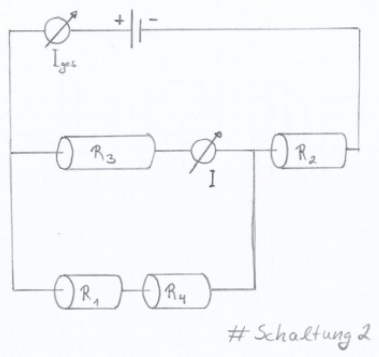 + -
I ges
R3
I
R2
R1
R4
# Schaltung 2